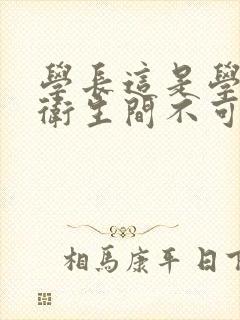 學長這是學
衛生間不可
相馬康平 日下